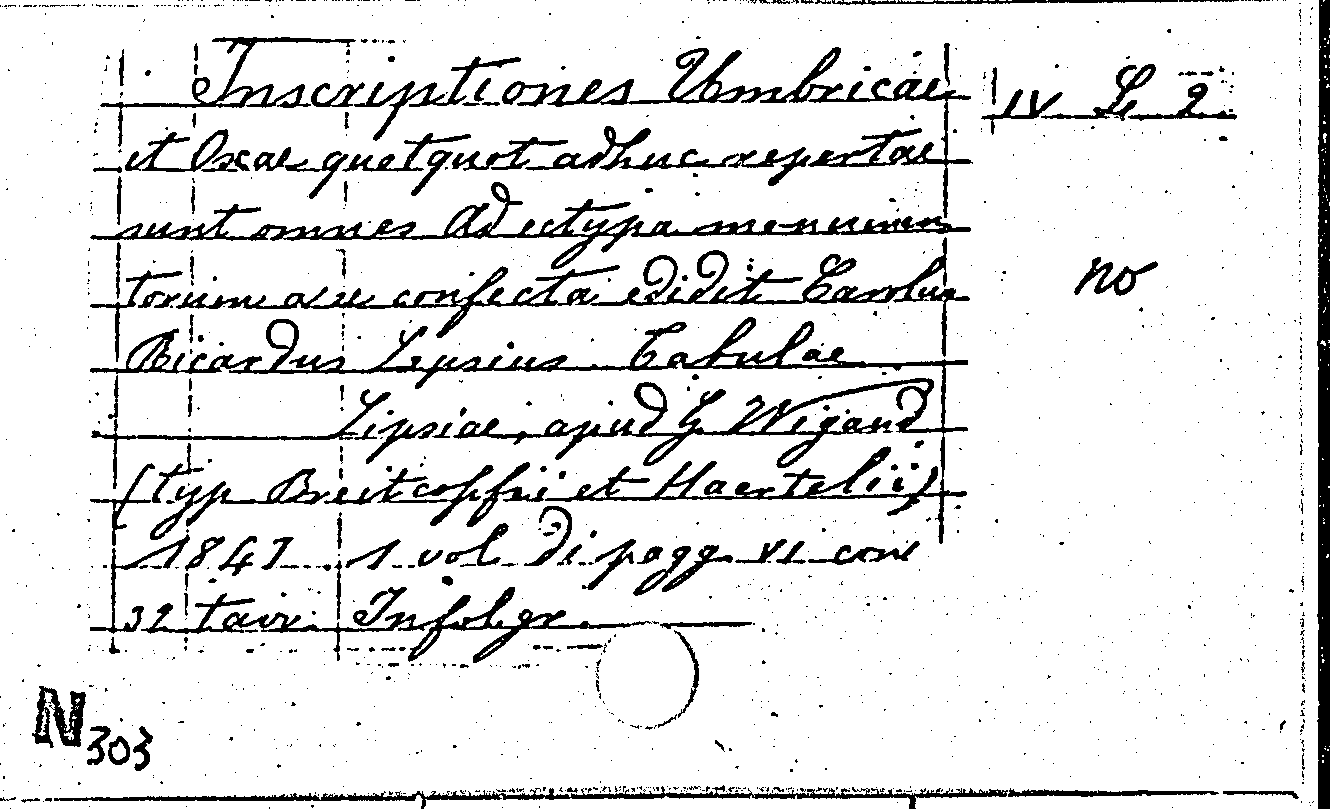 Inscriptiones Umbricae
IV Le 2.
et Oscae quotquot adhuc repertae
sunt omnes Ad ectypa monumen
torum a se confecta edidit Carolus
no
Ricardus Lepsius. Tabulae
Lipsiae, apud G. Wigand
(typ Breitcopfii et Haertelii)
1841. 1 vol di pagg. VI con
32 tavv. In fol. gr.
N 303